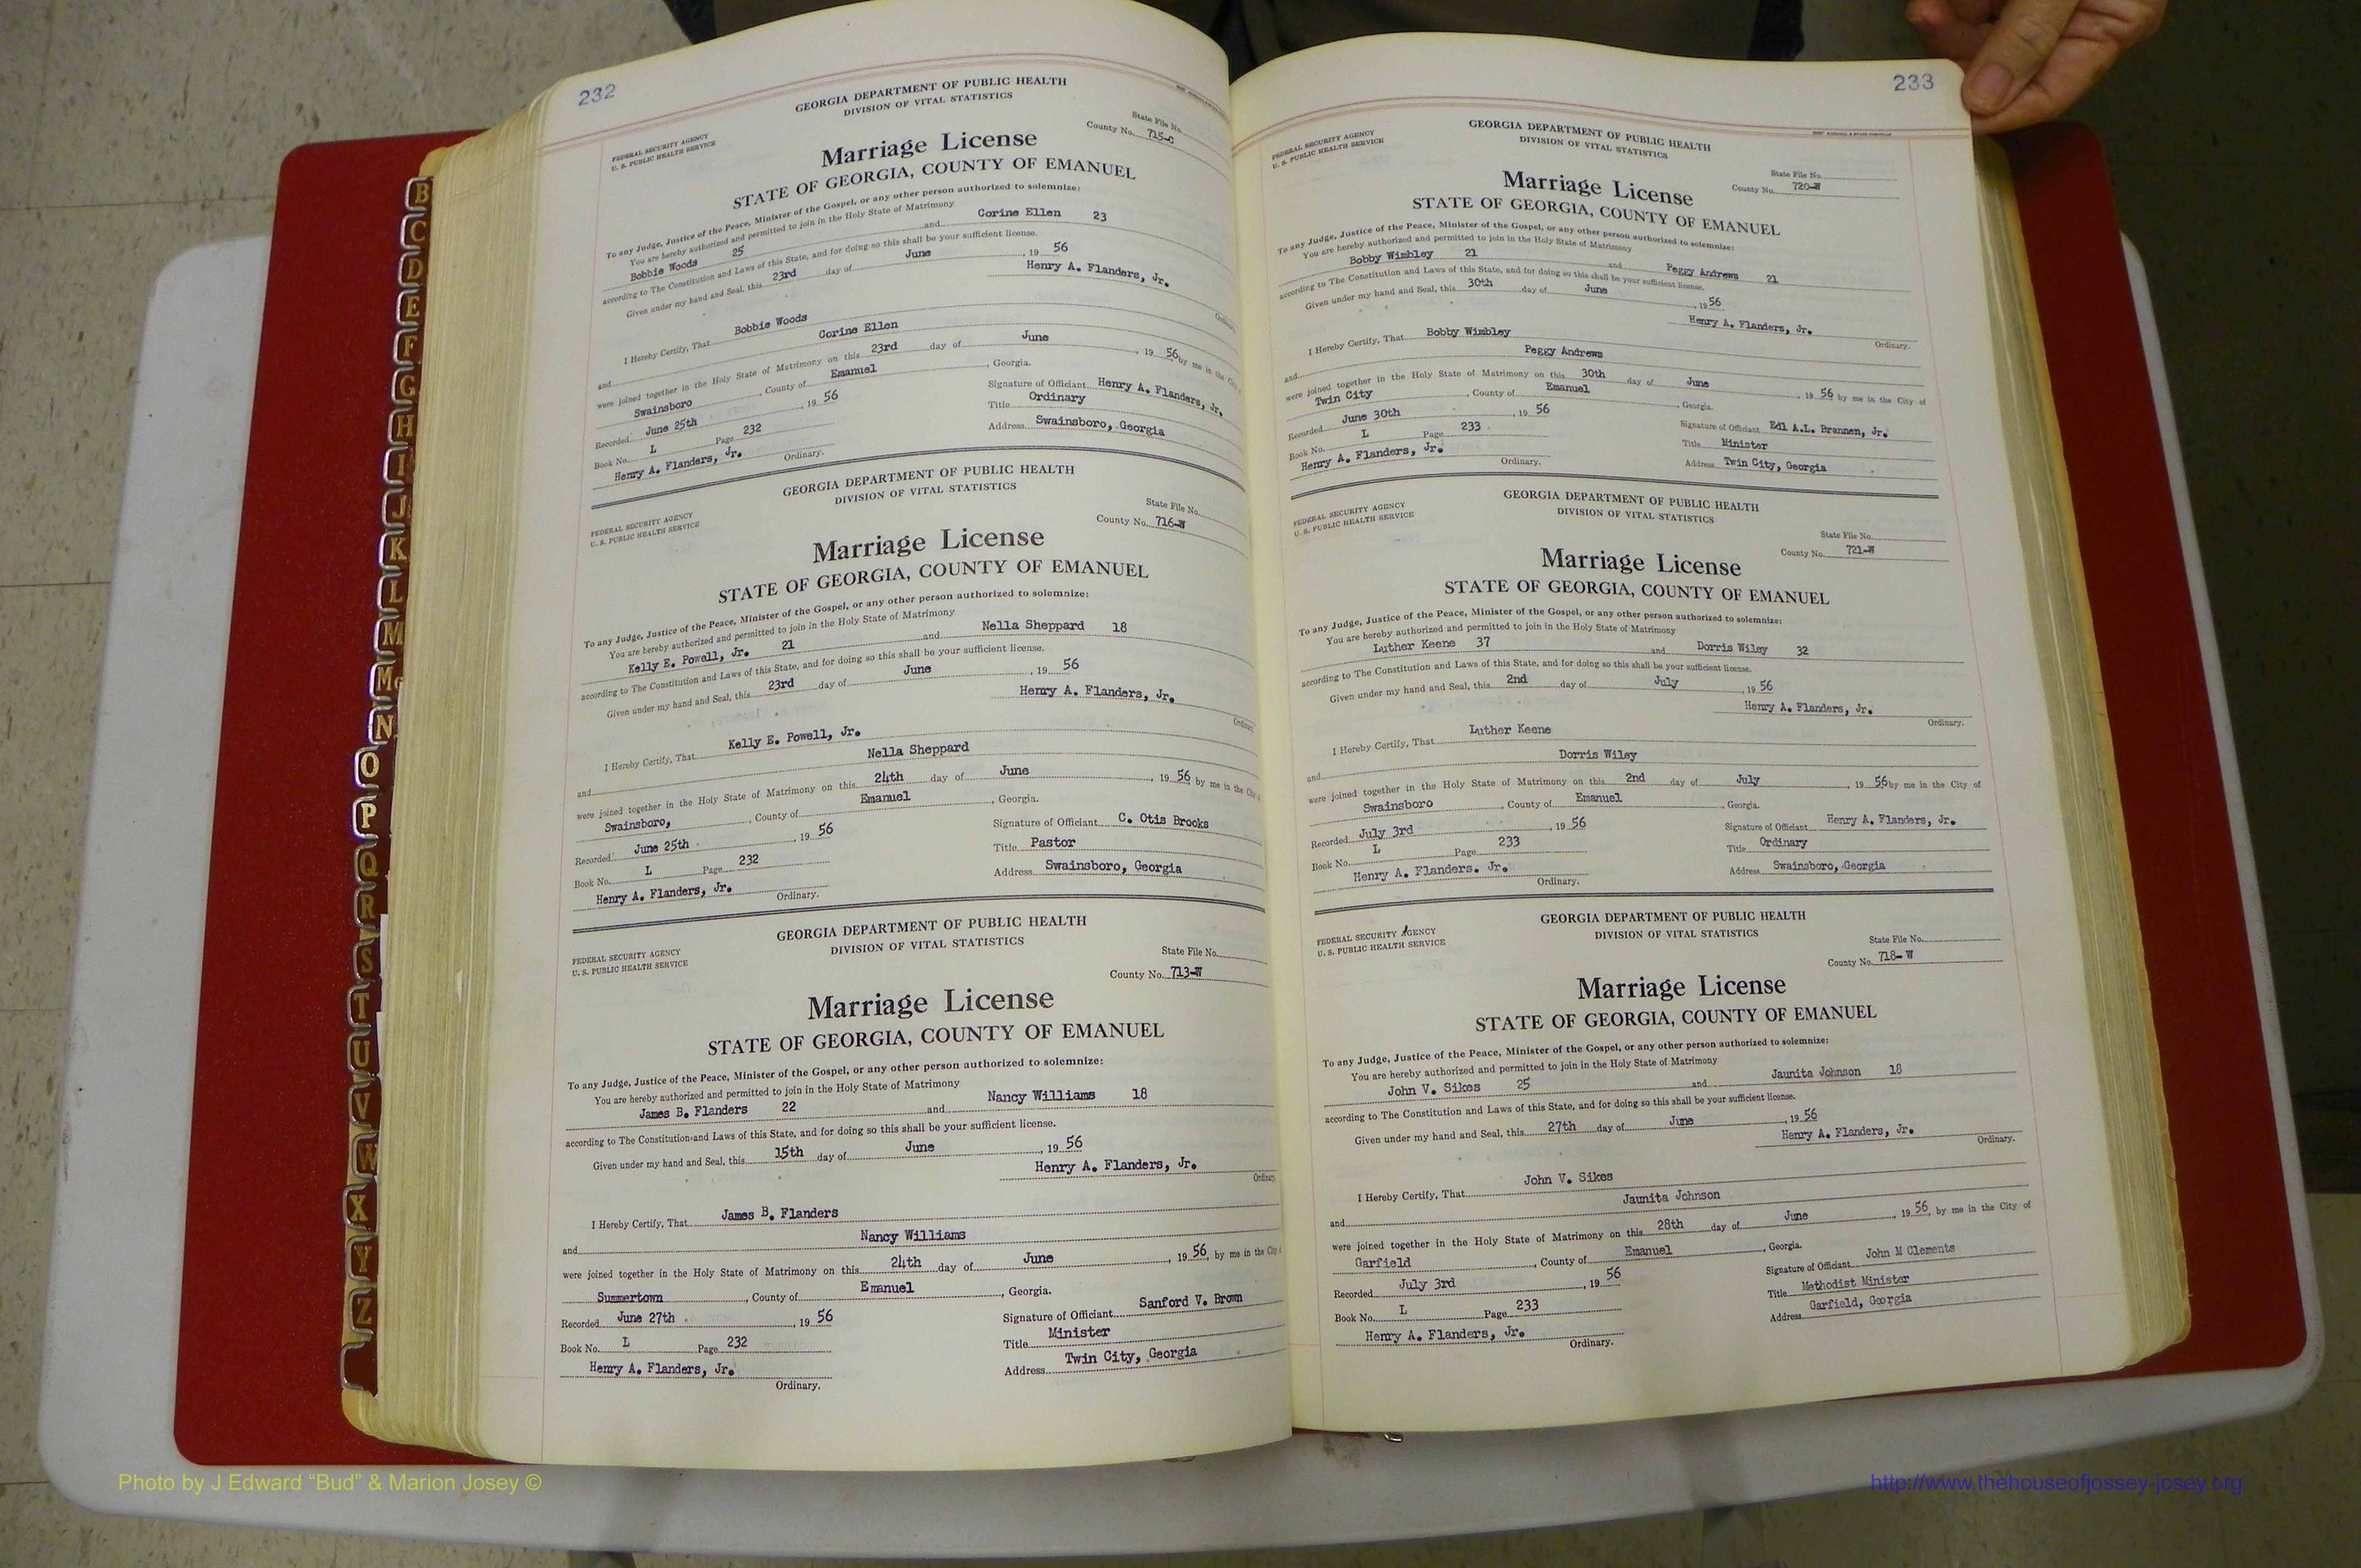 232
GEORGIA DEPARTMENT OF PUBLIC HEALTH
DIVISION OF VITAL STATISTICS
FEDERAL SECURITY AGENCY
U. S. PUBLIC HEALTH SERVICE
State File No.
County No. 715-C
Marriage License
STATE OF GEORGIA, COUNTY OF EMANUEL
To any Judge, Justice of the Peace, Minister of the Gospel, or any other person authorized to solemnize:
You are hereby authorized and permitted to join in the Holy State of Matrimony
Bobbie Woods 25 and Corine Ellen 23
according to The Constitution and Laws of this State, and for doing so this shall be your sufficient license.
Given under my hand and Seal, this 23rd day of June, 19 56
Henry A. Flanders, Jr.
Ordinary
I Hereby Certify, That Bobbie Woods
and Corine Ellen
were joined together in the Holy State of Matrimony on this 23rd day of June, 19 56 by me in the City
Swainsboro, County of Emanuel, Georgia.
Recorded June 25th, 19 56
Signature of Officiant Henry A. Flanders, Jr.
Book No. L Page 232
Title Ordinary
Henry A. Flanders, Jr. Ordinary.
Address Swainsboro, Georgia
GEORGIA DEPARTMENT OF PUBLIC HEALTH
DIVISION OF VITAL STATISTICS
FEDERAL SECURITY AGENCY
U. S. PUBLIC HEALTH SERVICE
State File No.
County No. 716-W
Marriage License
STATE OF GEORGIA, COUNTY OF EMANUEL
To any Judge, Justice of the Peace, Minister of the Gospel, or any other person authorized to solemnize:
You are hereby authorized and permitted to join in the Holy State of Matrimony
Kelly E. Powell, Jr. 21 and Nella Sheppard 18
according to The Constitution and Laws of this State, and for doing so this shall be your sufficient license.
Given under my hand and Seal, this 23rd day of June, 19 56
Henry A. Flanders, Jr.
Ordinary
I Hereby Certify, That Kelly E. Powell, Jr.
and Nella Sheppard
were joined together in the Holy State of Matrimony on this 24th day of June, 19 56 by me in the City
Swainsboro, County of Emanuel, Georgia.
Recorded June 25th, 19 56
Signature of Officiant C. Otis Brooks
Book No. L Page 232
Title Pastor
Henry A. Flanders, Jr. Ordinary.
Address Swainsboro, Georgia
GEORGIA DEPARTMENT OF PUBLIC HEALTH
DIVISION OF VITAL STATISTICS
FEDERAL SECURITY AGENCY
U. S. PUBLIC HEALTH SERVICE
State File No.
County No. 713-W
Marriage License
STATE OF GEORGIA, COUNTY OF EMANUEL
To any Judge, Justice of the Peace, Minister of the Gospel, or any other person authorized to solemnize:
You are hereby authorized and permitted to join in the Holy State of Matrimony
James B. Flanders 22 and Nancy Williams 18
according to The Constitution and Laws of this State, and for doing so this shall be your sufficient license.
Given under my hand and Seal, this 15th day of June, 19 56
Henry A. Flanders, Jr.
Ordinary
I Hereby Certify, That James B. Flanders
and Nancy Williams
were joined together in the Holy State of Matrimony on this 24th day of June, 19 56, by me in the City
Summertown, County of Emanuel, Georgia.
Recorded June 27th, 19 56
Signature of Officiant Sanford V. Brown
Book No. L Page 232
Title Minister
Henry A. Flanders, Jr. Ordinary.
Address Twin City, Georgia
233
GEORGIA DEPARTMENT OF PUBLIC HEALTH
DIVISION OF VITAL STATISTICS
FEDERAL SECURITY AGENCY
U. S. PUBLIC HEALTH SERVICE
State File No.
County No. 720-W
Marriage License
STATE OF GEORGIA, COUNTY OF EMANUEL
To any Judge, Justice of the Peace, Minister of the Gospel, or any other person authorized to solemnize:
You are hereby authorized and permitted to join in the Holy State of Matrimony
Bobby Wimbley 21 and Peggy Andrews 21
according to The Constitution and Laws of this State, and for doing so this shall be your sufficient license.
Given under my hand and Seal, this 30th day of June, 19 56
Henry A. Flanders, Jr.
Ordinary.
I Hereby Certify, That Bobby Wimbley
and Peggy Andrews
were joined together in the Holy State of Matrimony on this 30th day of June, 19 56 by me in the City of
Twin City, County of Emanuel, Georgia.
Recorded June 30th, 19 56
Signature of Officiant Edl A.L. Brannen, Jr.
Book No. L Page 233
Title Minister
Henry A. Flanders, Jr. Ordinary.
Address Twin City, Georgia
GEORGIA DEPARTMENT OF PUBLIC HEALTH
DIVISION OF VITAL STATISTICS
FEDERAL SECURITY AGENCY
U. S. PUBLIC HEALTH SERVICE
State File No.
County No. 721-W
Marriage License
STATE OF GEORGIA, COUNTY OF EMANUEL
To any Judge, Justice of the Peace, Minister of the Gospel, or any other person authorized to solemnize:
You are hereby authorized and permitted to join in the Holy State of Matrimony
Luther Keene 37 and Dorris Wiley 32
according to The Constitution and Laws of this State, and for doing so this shall be your sufficient license.
Given under my hand and Seal, this 2nd day of July, 19 56
Henry A. Flanders, Jr.
Ordinary.
I Hereby Certify, That Luther Keene
and Dorris Wiley
were joined together in the Holy State of Matrimony on this 2nd day of July, 19 56 by me in the City of
Swainsboro, County of Emanuel, Georgia.
Recorded July 3rd, 19 56
Signature of Officiant Henry A. Flanders, Jr.
Book No. L Page 233
Title Ordinary
Henry A. Flanders. Jr. Ordinary.
Address Swainsboro, Georgia
GEORGIA DEPARTMENT OF PUBLIC HEALTH
DIVISION OF VITAL STATISTICS
FEDERAL SECURITY AGENCY
U. S. PUBLIC HEALTH SERVICE
State File No.
County No. 718- W
Marriage License
STATE OF GEORGIA, COUNTY OF EMANUEL
To any Judge, Justice of the Peace, Minister of the Gospel, or any other person authorized to solemnize:
You are hereby authorized and permitted to join in the Holy State of Matrimony
John V. Sikes 25 and Jaunita Johnson 18
according to The Constitution and Laws of this State, and for doing so this shall be your sufficient license.
Given under my hand and Seal, this 27th day of June, 19 56
Henry A. Flanders, Jr.
Ordinary.
I Hereby Certify, That John V. Sikes
and Jaunita Johnson
were joined together in the Holy State of Matrimony on this 28th day of June, 19 56, by me in the City of
Garfield, County of Emanuel, Georgia.
Recorded July 3rd, 19 56
Signature of Officiant John M Clements
Book No. L Page 233
Title Methodist Minister
Henry A. Flanders, Jr. Ordinary.
Address Garfield, Georgia
B
C
D
E
F
G
H
I
J
K
L
M
Mc
N
O
P
Q
R
S
T
U
V
W
X
Y
Z
Photo by J Edward “Bud” & Marion Josey ©
http://www.thehouseofjossey-josey.org